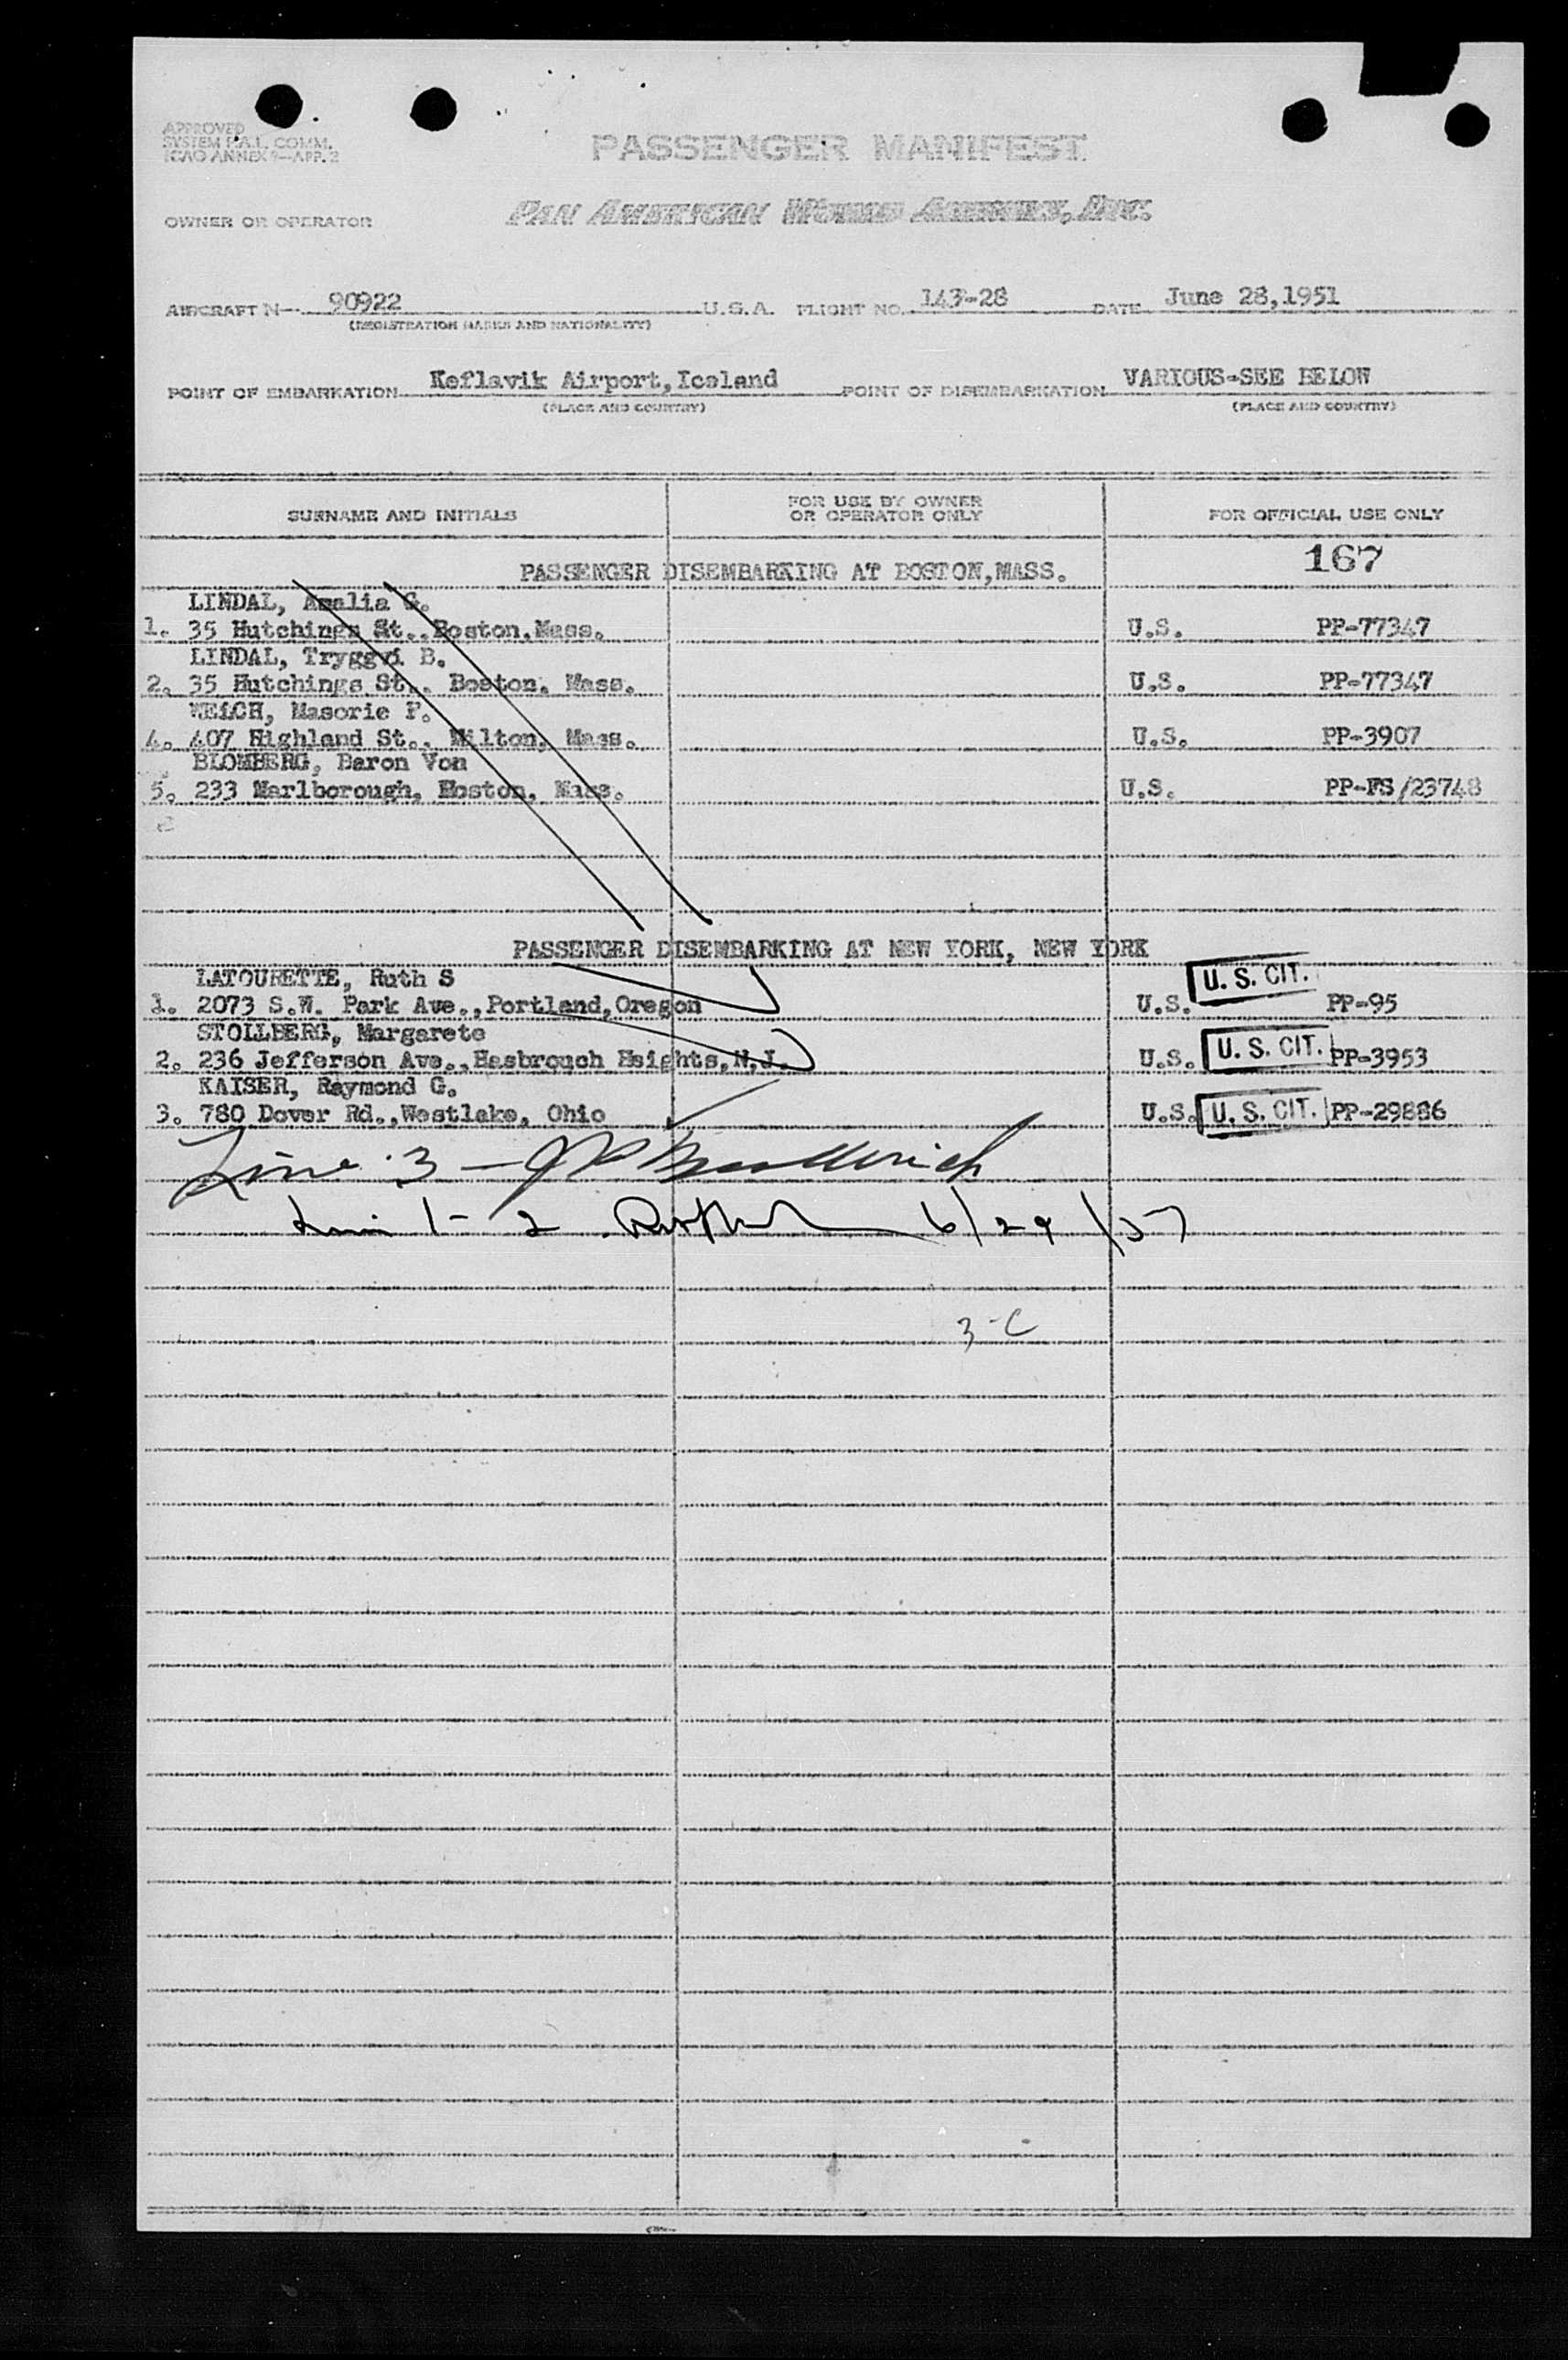 APPROVED
SYSTEM F.A.L. COMM.
ICAO ANNEX 9—APP. 2
PASSENGER MANIFEST
OWNER OR OPERATOR PAN AMERICAN WORLD AIRWAYS, INC.
AIRCRAFT N— 90922 U.S.A. FLIGHT NO. 143-28 DATE June 28,1951
(REGISTRATION MARKS AND NATIONALITY)
POINT OF EMBARKATION Keflavik Airport,Iceland POINT OF DISEMBARKATION VARIOUS-SEE BELOW
(PLACE AND COUNTRY) (PLACE AND COUNTRY)
SURNAME AND INITIALS FOR USE BY OWNER OR OPERATOR ONLY FOR OFFICIAL USE ONLY
167
PASSENGER DISEMBARKING AT BOSTON,MASS.
LINDAL, Amalia G.
1. 35 Hutchings St.,Boston,Mass. U.S. PP-77347
LINDAL, Tryggvi B.
2. 35 Hutchings St., Boston, Mass. U.S. PP-77347
WELCH, Masorie F.
4. 407 Highland St., Milton, Mass. U.S. PP-3907
BLOMBERG, Baron Von
5. 233 Marlborough, Boston, Mass. U.S. PP-FS/23748
PASSENGER DISEMBARKING AT NEW YORK, NEW YORK
LATOURETTE, Ruth S
1. 2073 S.W. Park Ave.,Portland,Oregon U.S. U. S. CIT. PP-95
STOLLBERG, Margarete
2. 236 Jefferson Ave.,Hasbrouch Heights,N.J. U.S. U. S. CIT. PP-3953
KAISER, Raymond G.
3. 780 Dover Rd.,Westlake, Ohio U.S. U. S. CIT. PP-29886
Line 3 —
1 - 2 6/29/
3-C